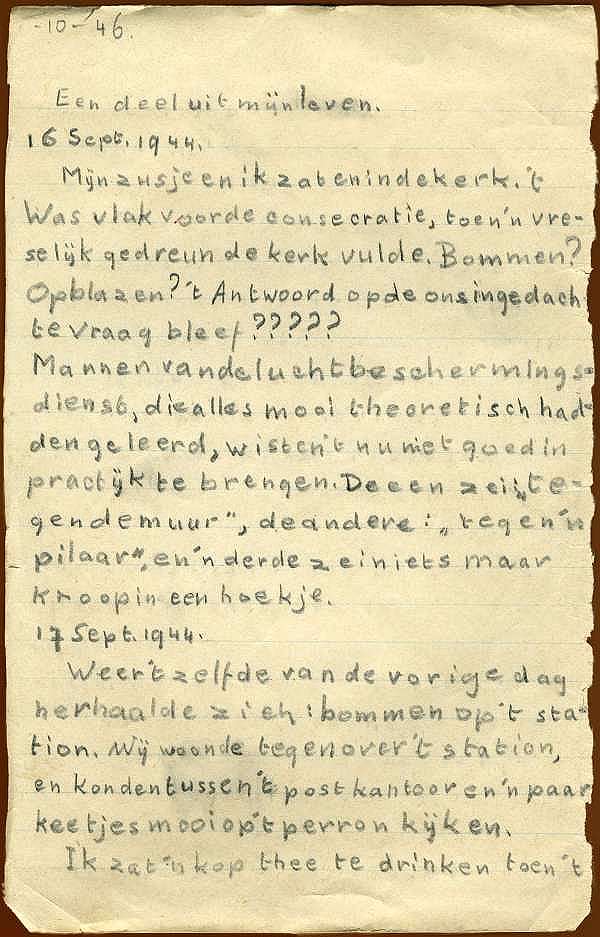 -10-46.
Een deel uit mijn leven.
16 Sept. 1944.
Mijn zusje en ik zaten in de kerk. 't
Was vlak voor de consecratie, toen 'n vre-
selijk gedreun de kerk vulde. Bommen?
Opblazen? 't Antwoord op de ons ingedach-
te vraag bleef ?????
Mannen van de luchtbeschermings-
dienst, die alles mooi theoretisch had-
den geleerd, wisten 't nu niet goed in
practijk te brengen. De een zei: „te-
gen de muur", de andere: „tegen 'n
pilaar", en 'n derde zei niets maar
kroop in een hoekje.
17 Sept. 1944.
Weer 't zelfde van de vorige dag
herhaalde zich: bommen op 't sta-
tion. Wij woonde tegenover 't station,
en konden tussen 't postkantoor en 'n paar
keetjes mooi op 't perron kijken.
Ik zat 'n kop thee te drinken toen 't